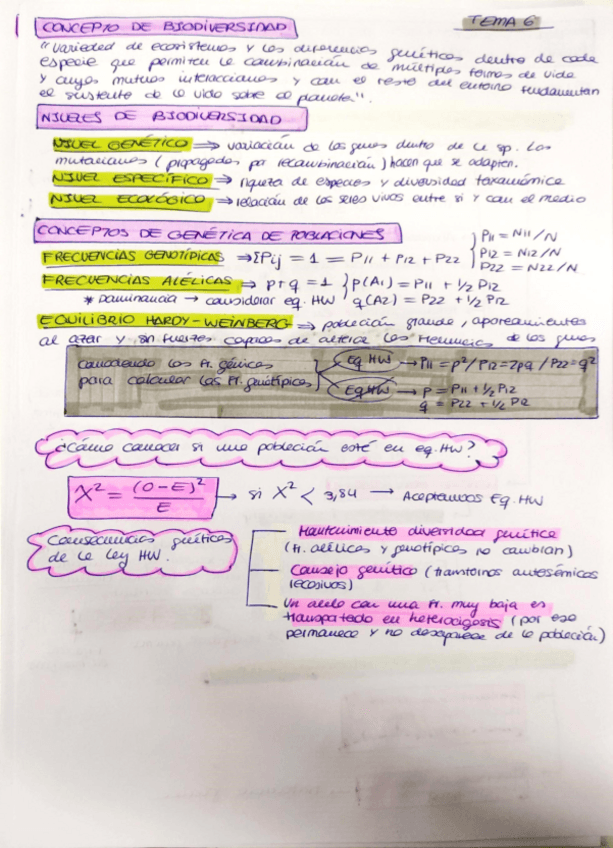 CONCEPTO DE BIODIVERSIDAD
TEMA 6
"variedad de ecosistemas y las diferencias genéticas dentro de cada
especie que permiten la combinación de múltiples formas de vida
y cuyas mutuas interacciones y con el resto del entorno fundamentan
el sustento de la vida sobre el planeta".
NIVELES DE BIODIVERSIDAD
NIVEL GENÉTICO ⇒ variación de los genes dentro de la sp. Las
mutaciones (propagadas por recombinación) hacen que se adapten.
NIVEL ESPECÍFICO ⇒ riqueza de especies y diversidad taxonómica
NIVEL ECOLÓGICO ⇒ relación de los seres vivos entre sí y con el medio
CONCEPTOS DE GENÉTICA DE POBLACIONES
FRECUENCIAS GENOTÍPICAS ⇒ ΣPij = 1 = P11 + P12 + P22 } P11 = N11/N
P12 = N12/N
P22 = N22/N
FRECUENCIAS ALÉLICAS ⇒ p+q = 1 } p(A1) = P11 + 1/2 P12
* Dominancia → considerar eq. HW } q(A2) = P22 + 1/2 P12
EQUILIBRIO HARDY-WEINBERG ⇒ población grande, apareamientos
al azar y sin fuerzas capaces de alterar las frecuencias de los genes
conociendo las fr. génicas Eq HW → P11 = p² / P12 = 2pq / P22 = q²
para calcular las fr. genotípicas Eq HW → p = P11 + 1/2 P12
q = P22 + 1/2 P12
¿Cómo conocer si una población está en eq. HW?
X² = (O-E)² / E → si X² < 3,84 → Aceptamos Eq. HW
Consecuencias genéticas
de la ley HW.
Mantenimiento diversidad genética
(fr. alélicas y genotípicas no cambian)
Consejo genético (transtornos autosómicos
recesivos)
Un alelo con una fr. muy baja es
transportado en heterocigosis (por eso
permanece y no desaparece de la población)